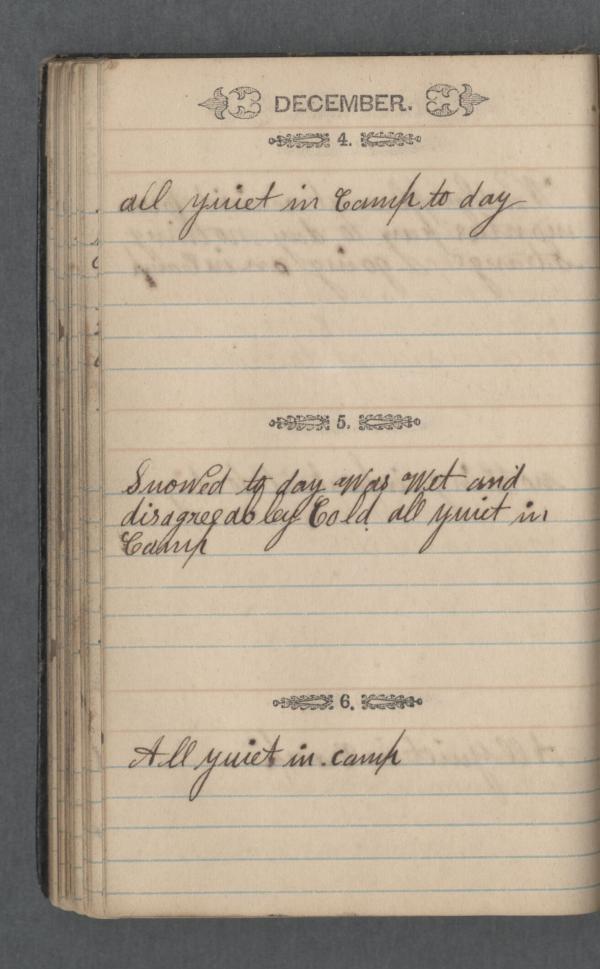 DECEMBER.
4.
all quiet in Camp to day
5.
Snowed to day Was Wet and
disagreeabley Cold all quiet in
Camp
6.
All quiet in camp